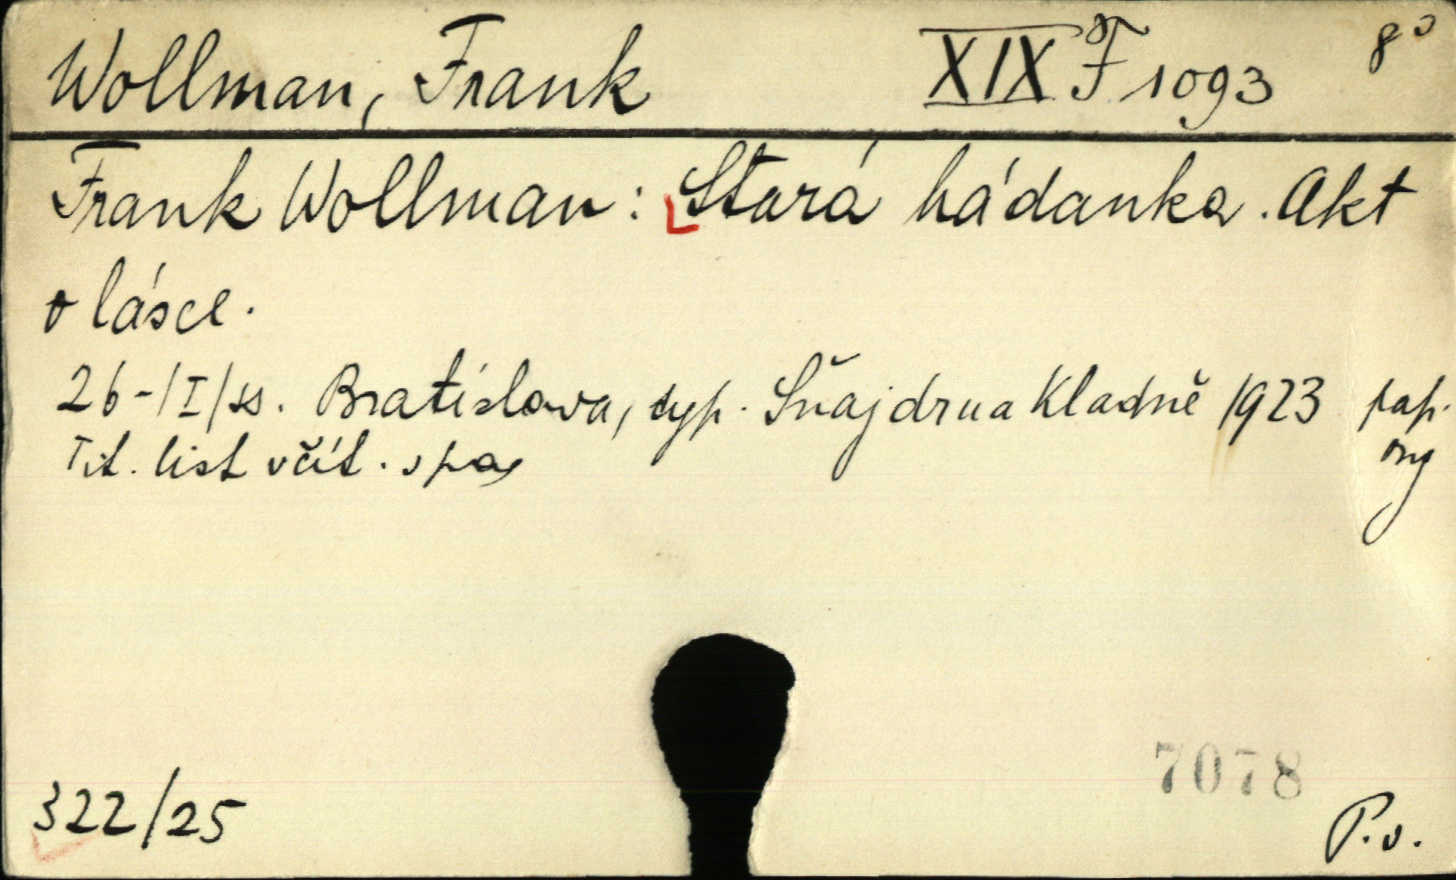 Wollman, Frank XIX F 1093 8°
Frank Wollman: Stará hádanka. Akt
o lásce.
26-/I/ss. Bratislava, typ. Šnajdr na Kladně 1923 pap.
Tit. list včít.
322/25
7078
P.v.